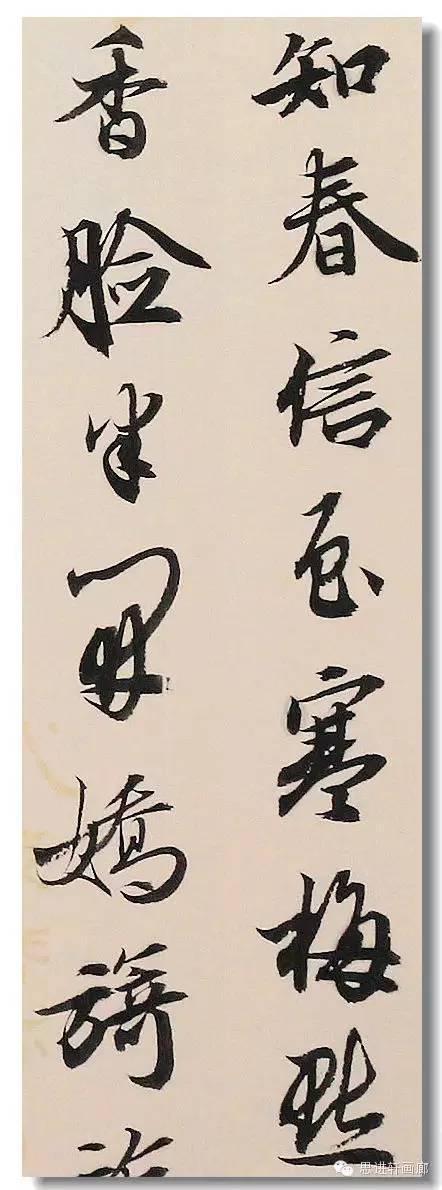 知春信至塞梅點
香脸半開嬌旖
思进轩画廊